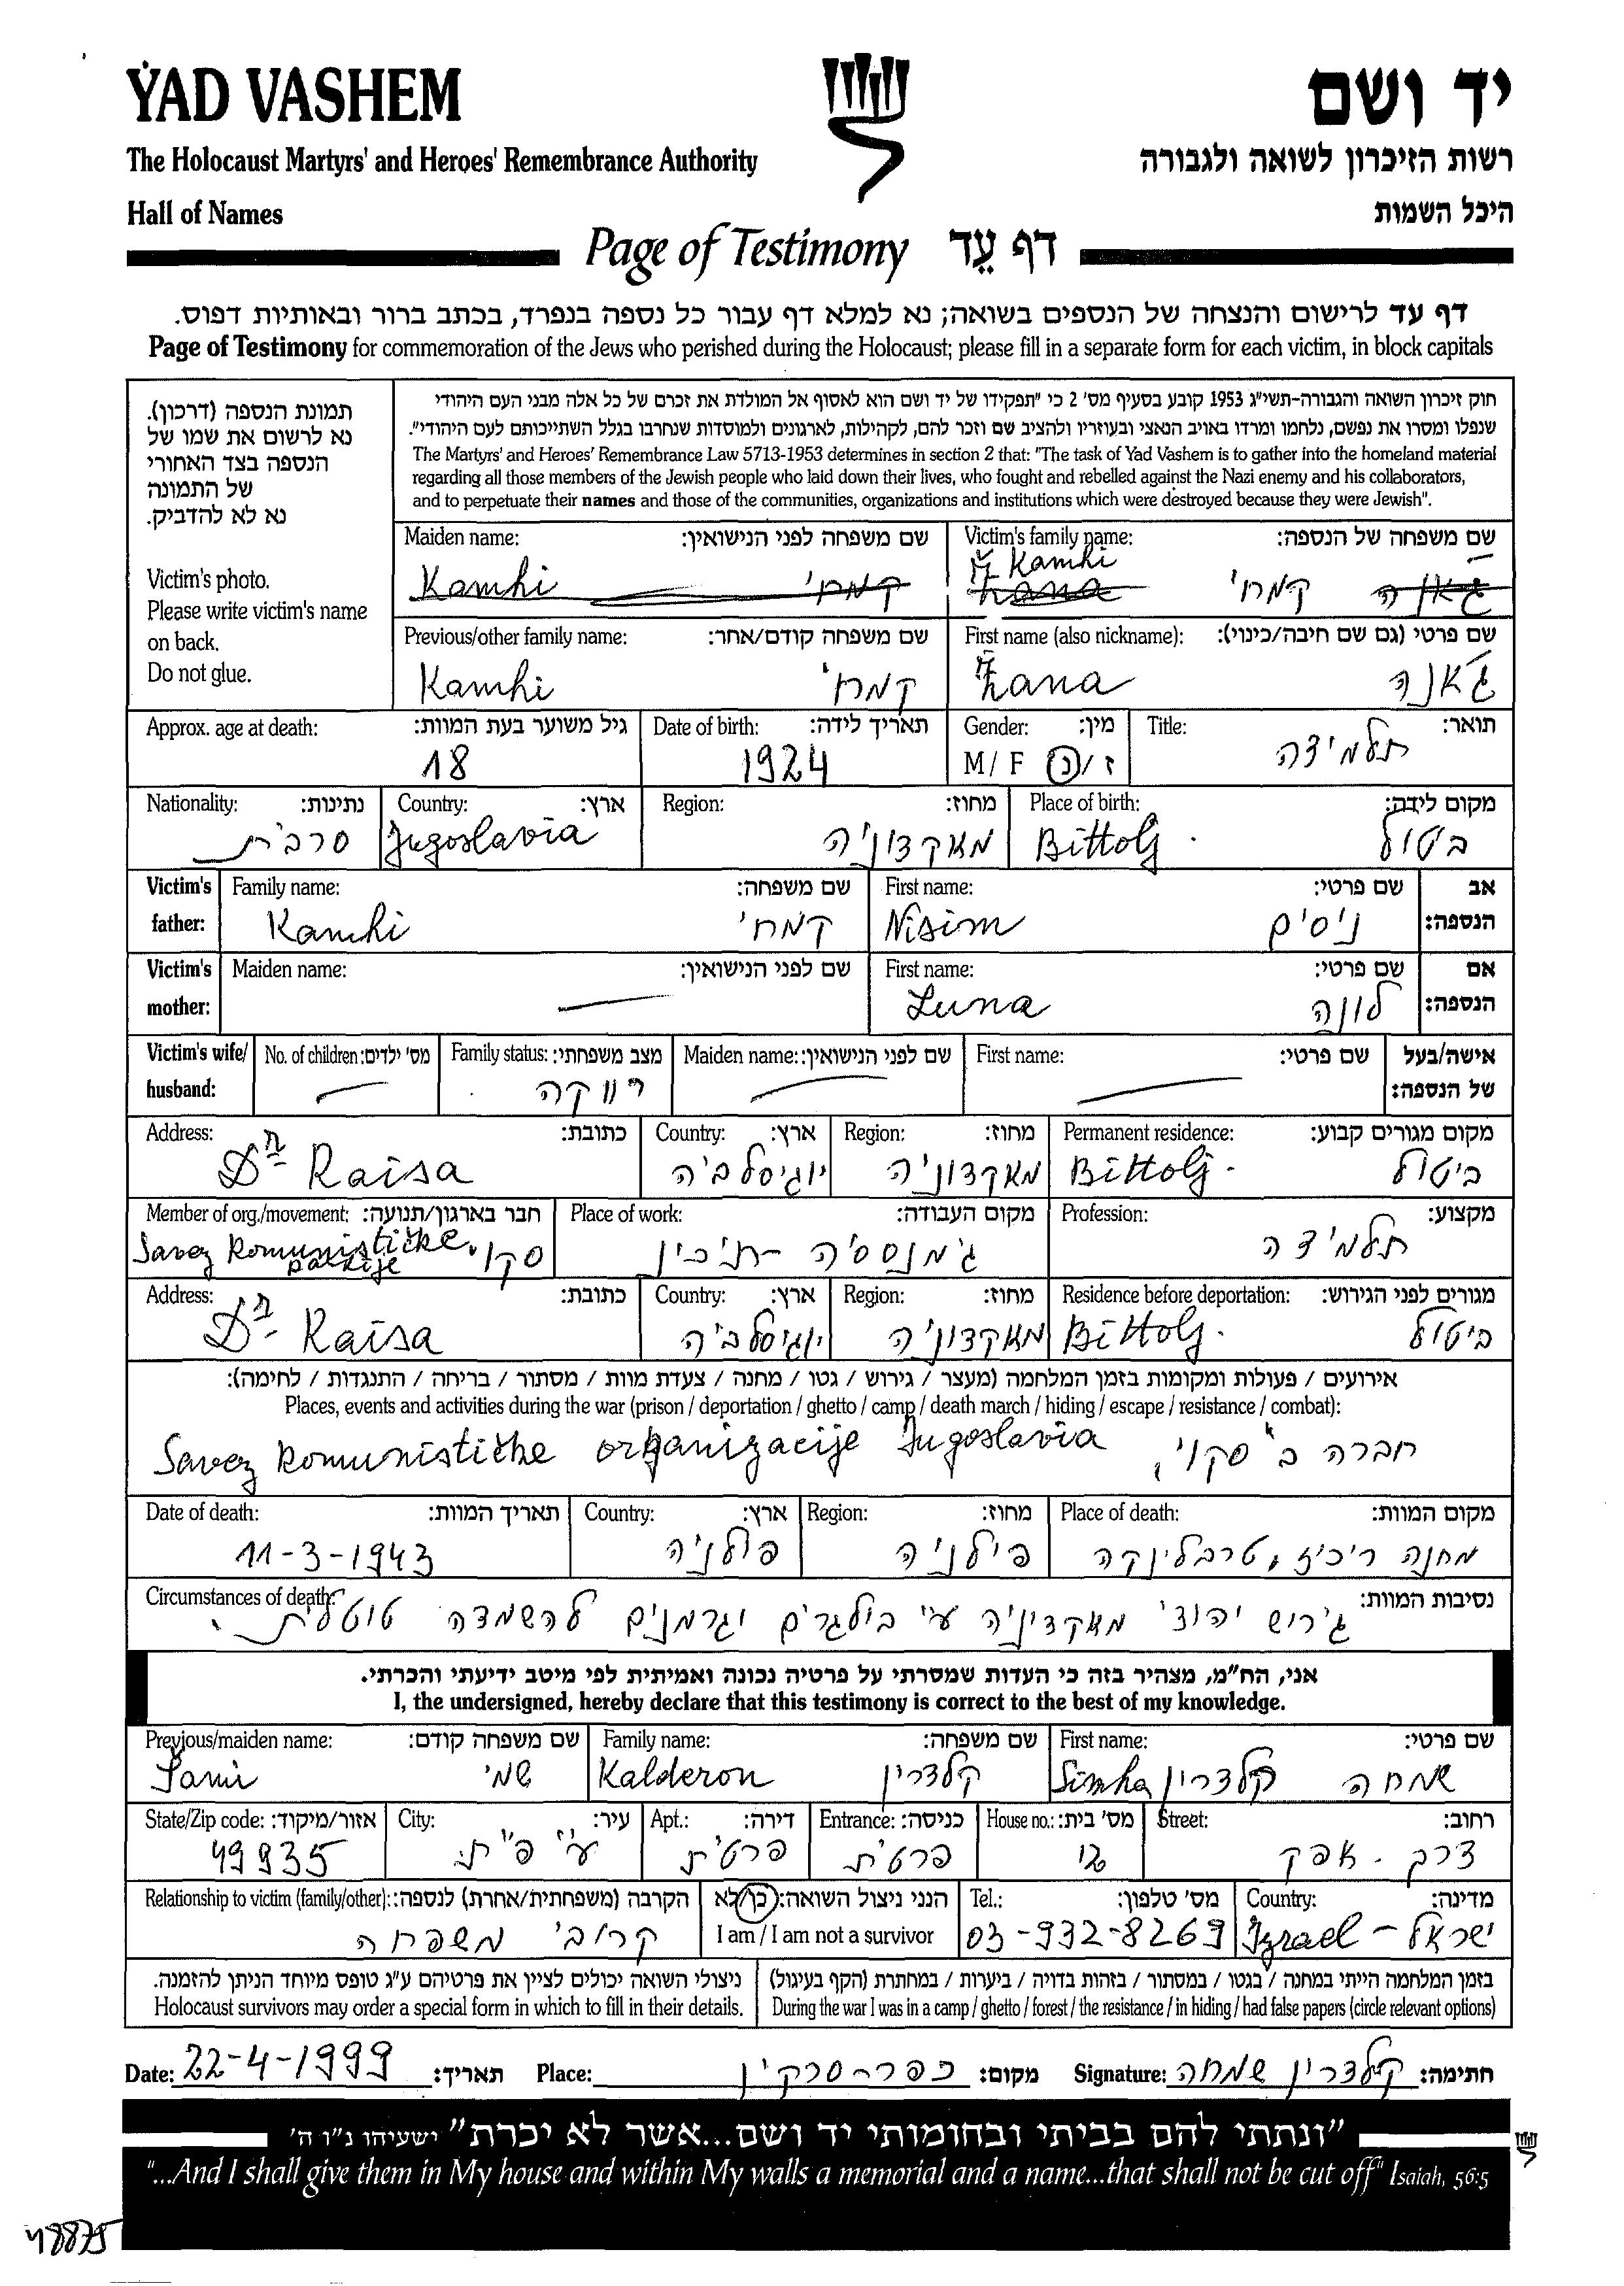 YAD VASHEM
יד ושם
The Holocaust Martyrs' and Heroes' Remembrance Authority
רשות הזיכרון לשואה ולגבורה
Hall of Names
היכל השמות
Page of Testimony דף עֵד
דף עד לרישום והנצחה של הנספים בשואה; נא למלא דף עבור כל נספה בנפרד, בכתב ברור ובאותיות דפוס.
Page of Testimony for commemoration of the Jews who perished during the Holocaust; please fill in a separate form for each victim, in block capitals
תמונת הנספה (דרכון).
נא לרשום את שמו של
הנספה בצד האחורי
של התמונה
נא לא להדביק.
Victim's photo.
Please write victim's name
on back.
Do not glue.
חוק זיכרון השואה והגבורה-תשי"ג 1953 קובע בסעיף מס' 2 כי "תפקידו של יד ושם הוא לאסוף אל המולדת את זכרם של כל אלה מבני העם היהודי
שנפלו ומסרו את נפשם, נלחמו ומרדו באויב הנאצי ובעוזריו ולהציב שם וזכר להם, לקהילות, לארגונים ולמוסדות שנחרבו בגלל השתייכותם לעם היהודי".
The Martyrs' and Heroes' Remembrance Law 5713-1953 determines in section 2 that: "The task of Yad Vashem is to gather into the homeland material
regarding all those members of the Jewish people who laid down their lives, who fought and rebelled against the Nazi enemy and his collaborators,
and to perpetuate their names and those of the communities, organizations and institutions which were destroyed because they were Jewish".
Maiden name: שם משפחה לפני הנישואין:
Kamhi קמחי
Victim's family name: שם משפחה של הנספה:
Kamhi
קמחי
Previous/other family name: שם משפחה קודם/אחר:
Kamhi קמחי
First name (also nickname): שם פרטי (גם שם חיבה/כינוי):
Žana ז'אנה
Approx. age at death: גיל משוער בעת המוות:
18
Date of birth: תאריך לידה:
1924
Gender: מין:
M / F ז/נ
Title: תואר:
תלמידה
Nationality: נתינות:
סרבית
Country: ארץ:
Jugoslavia
Region: מחוז:
מאקדוניה
Place of birth: מקום לידה:
Bittolj ביטול
Victim's father: Family name: שם משפחה:
Kamhi קמחי
First name: שם פרטי: אב הנספה:
Nisim ניסים
Victim's mother: Maiden name: שם לפני הנישואין:
First name: שם פרטי: אם הנספה:
Luna לונה
Victim's wife/ husband: No. of children: מס' ילדים:
Family status: מצב משפחתי:
רווקה
Maiden name: שם לפני הנישואין:
First name: שם פרטי: אישה/בעל של הנספה:
Address: כתובת:
Raisa
Country: ארץ:
יוגוסלביה
Region: מחוז:
מאקדוניה
Permanent residence: מקום מגורים קבוע:
Bittolj ביטול
Member of org./movement: חבר בארגון/תנועה:
Savez Komunističke partije סקוי
Place of work: מקום העבודה:
גימנסיה - תיכון
Profession: מקצוע:
תלמידה
Address: כתובת:
Raisa
Country: ארץ:
יוגוסלביה
Region: מחוז:
מאקדוניה
Residence before deportation: מגורים לפני הגירוש:
Bittolj ביטול
אירועים / פעולות ומקומות בזמן המלחמה (מעצר / גירוש / גטו / מחנה / צעדת מוות / מסתור / בריחה / התנגדות / לחימה):
Places, events and activities during the war (prison / deportation / ghetto / camp / death march / hiding / escape / resistance / combat):
Savez Komunističke organizacije Jugoslavia חברה ב"סקוי"
Date of death: תאריך המוות:
11-3-1943
Country: ארץ:
פולניה
Region: מחוז:
פולניה
Place of death: מקום המוות:
מחנה ריכוז, טרבלינקה
Circumstances of death: נסיבות המוות:
גירוש יהודי מאקדוניה ע"י בולגרים וגרמנים להשמדה טוטלית.
אני, הח"מ, מצהיר בזה כי העדות שמסרתי על פרטיה נכונה ואמיתית לפי מיטב ידיעתי והכרתי.
I, the undersigned, hereby declare that this testimony is correct to the best of my knowledge.
Previous/maiden name: שם משפחה קודם:
Šami שמי
Family name: שם משפחה:
Kalderon קלדרון
First name: שם פרטי:
Simha קלדרון שמחה
State/Zip code: אזור/מיקוד:
49935
City: עיר:
Apt.: דירה:
פרטית
Entrance: כניסה:
פרטית
House no.: מס' בית:
Street: רחוב:
דרך - אפק
Relationship to victim (family/other): הקרבה (משפחתית/אחרת) לנספה:
קרובי משפחה
הנני ניצול השואה: כן/לא
I am / I am not a survivor
Tel.: מס' טלפון:
03-932-8269
Country: מדינה:
Izrael - ישראל
ניצולי השואה יכולים לציין את פרטיהם ע"ג טופס מיוחד הניתן להזמנה.
Holocaust survivors may order a special form in which to fill in their details.
בזמן המלחמה הייתי במחנה / בגטו / במסתור / בזהות בדויה / ביערות / במחתרת (הקף בעיגול)
During the war I was in a camp / ghetto / forest / the resistance / in hiding / had false papers (circle relevant options)
Date: 22-4-1999 תאריך: Place: כפר-סרקין מקום: Signature: קלדרון שמחה חתימה:
"ונתתי להם בביתי ובחומותי יד ושם...אשר לא יכרת" ישעיהו נ"ו ה'
"...And I shall give them in My house and within My walls a memorial and a name...that shall not be cut off" Isaiah, 56:5